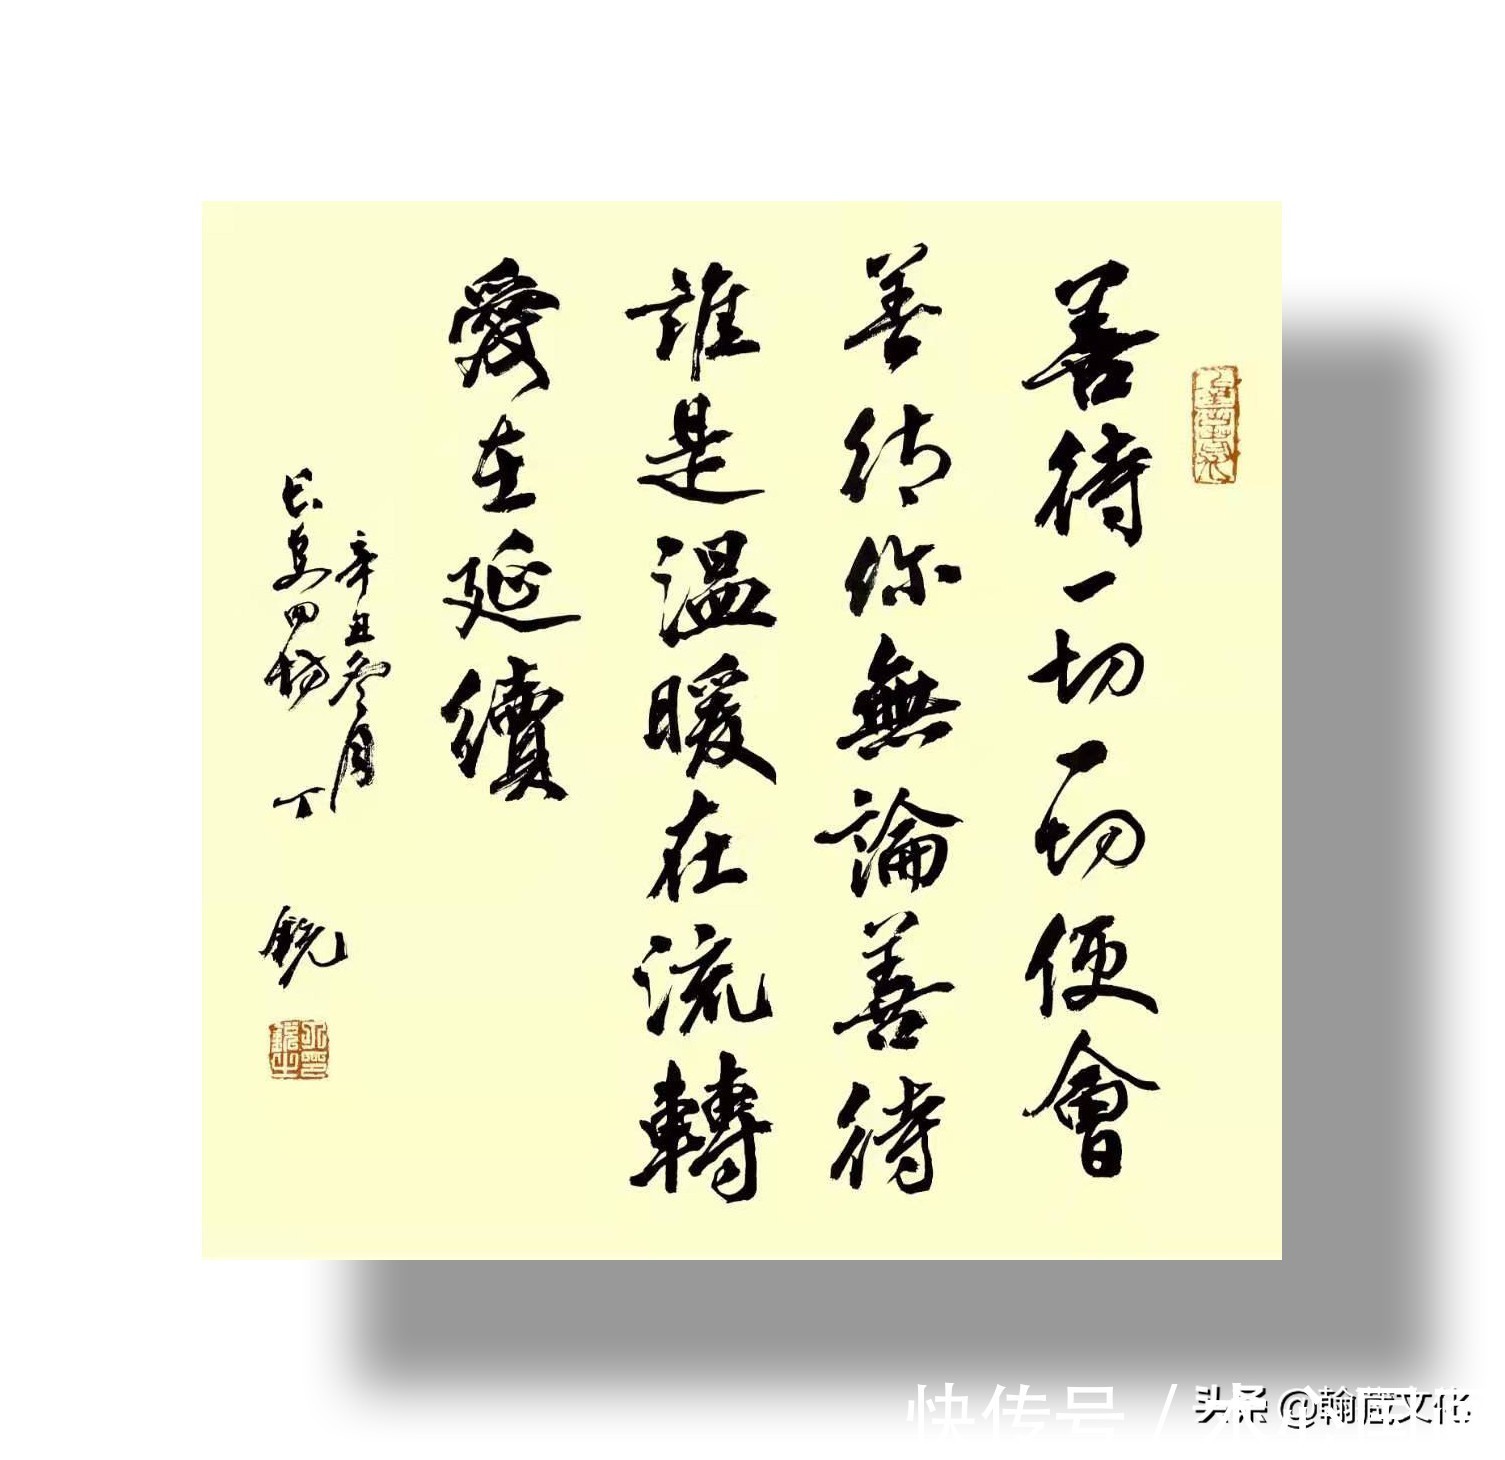 善待一切一切便會
善待你無論善待
誰是溫暖在流轉
愛在延續
辛丑冬月
長安四坊 丁 銳
快传号 /
头条 @翰葳文化